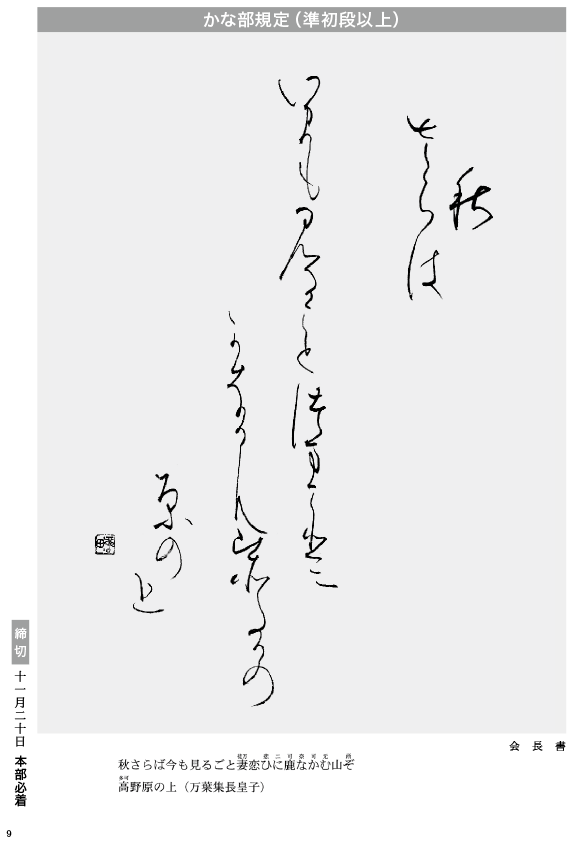 かな部規定（準初段以上）
秋
さらは
いまも見ること
原の
上
会長書
秋さらば今も見るごと妻恋ひに鹿なかむ山ぞ
多可
高野原の上（万葉集長皇子）
締切
十一月二十日 本部必着
9